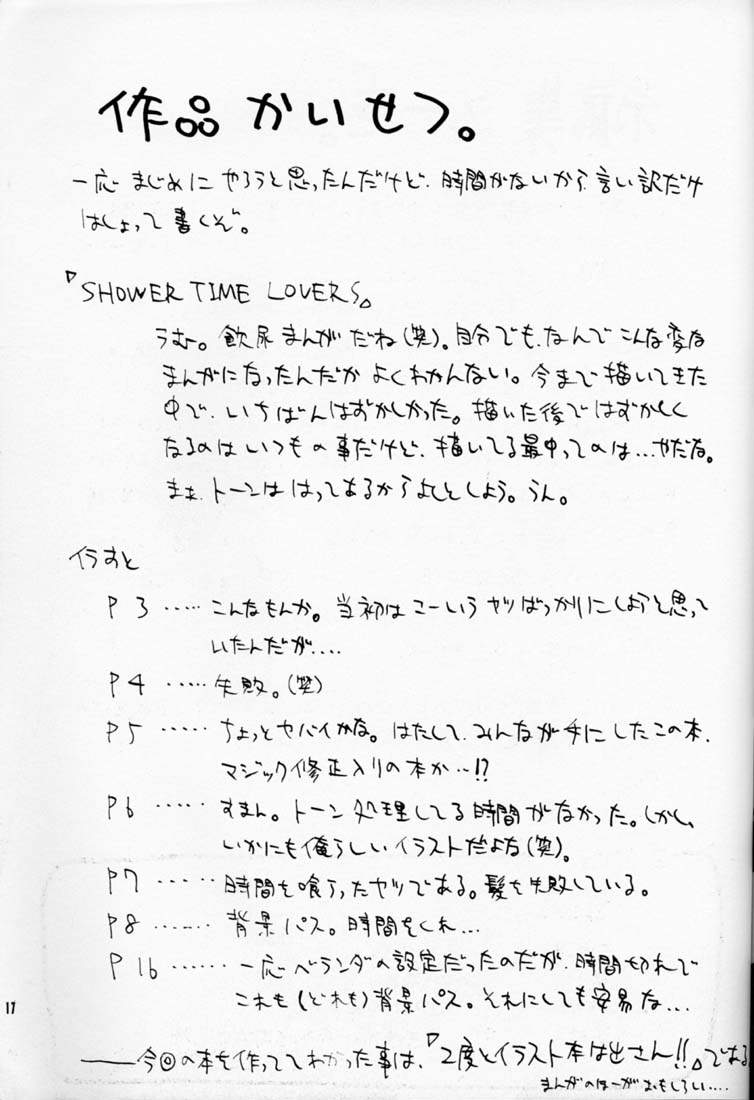 作品かいせつ。
一応まじめにやろうと思ったんだけど、時間がないから、言い訳だけ
はしょって書くぞ。
『SHOWER TIME LOVERS』
うむ。飲尿まんがだね(笑)。自分でも、なんでこんな変な
まんがになったんだかよくわかんない。今まで描いてきた
中で、いちばんはずかしかった。描いた後ではずかしく
なるのはいつもの事だけど、描いてる最中ってのは…やだな。
まぁ、トーンははってあるからよしとしよう。うん。
イラすと
P3……こんなもんか。当初はこーいうヤツばっかりにしようと思って
いたんだが….
P4……失敗。(笑)
P5……ちょっとヤバイかな。はたして、みんなが手にしたこの本、
マジック修正入りの本か…!?
P6……すまん。トーン処理してる時間がなかった。しかし、
いかにも俺らしいイラストだよな(笑)。
P7……時間を喰ったヤツである。髪を失敗している。
P8……背景パス。時間をくれ…
P16……一応ベランダの設定だったのだが、時間切れで
これも(どれも)背景パス。それにしても安易な…
17
――今回の本を作っててわかった事は、『2度とイラスト本は出さん!!』である
まんがのほーがおもしろい….